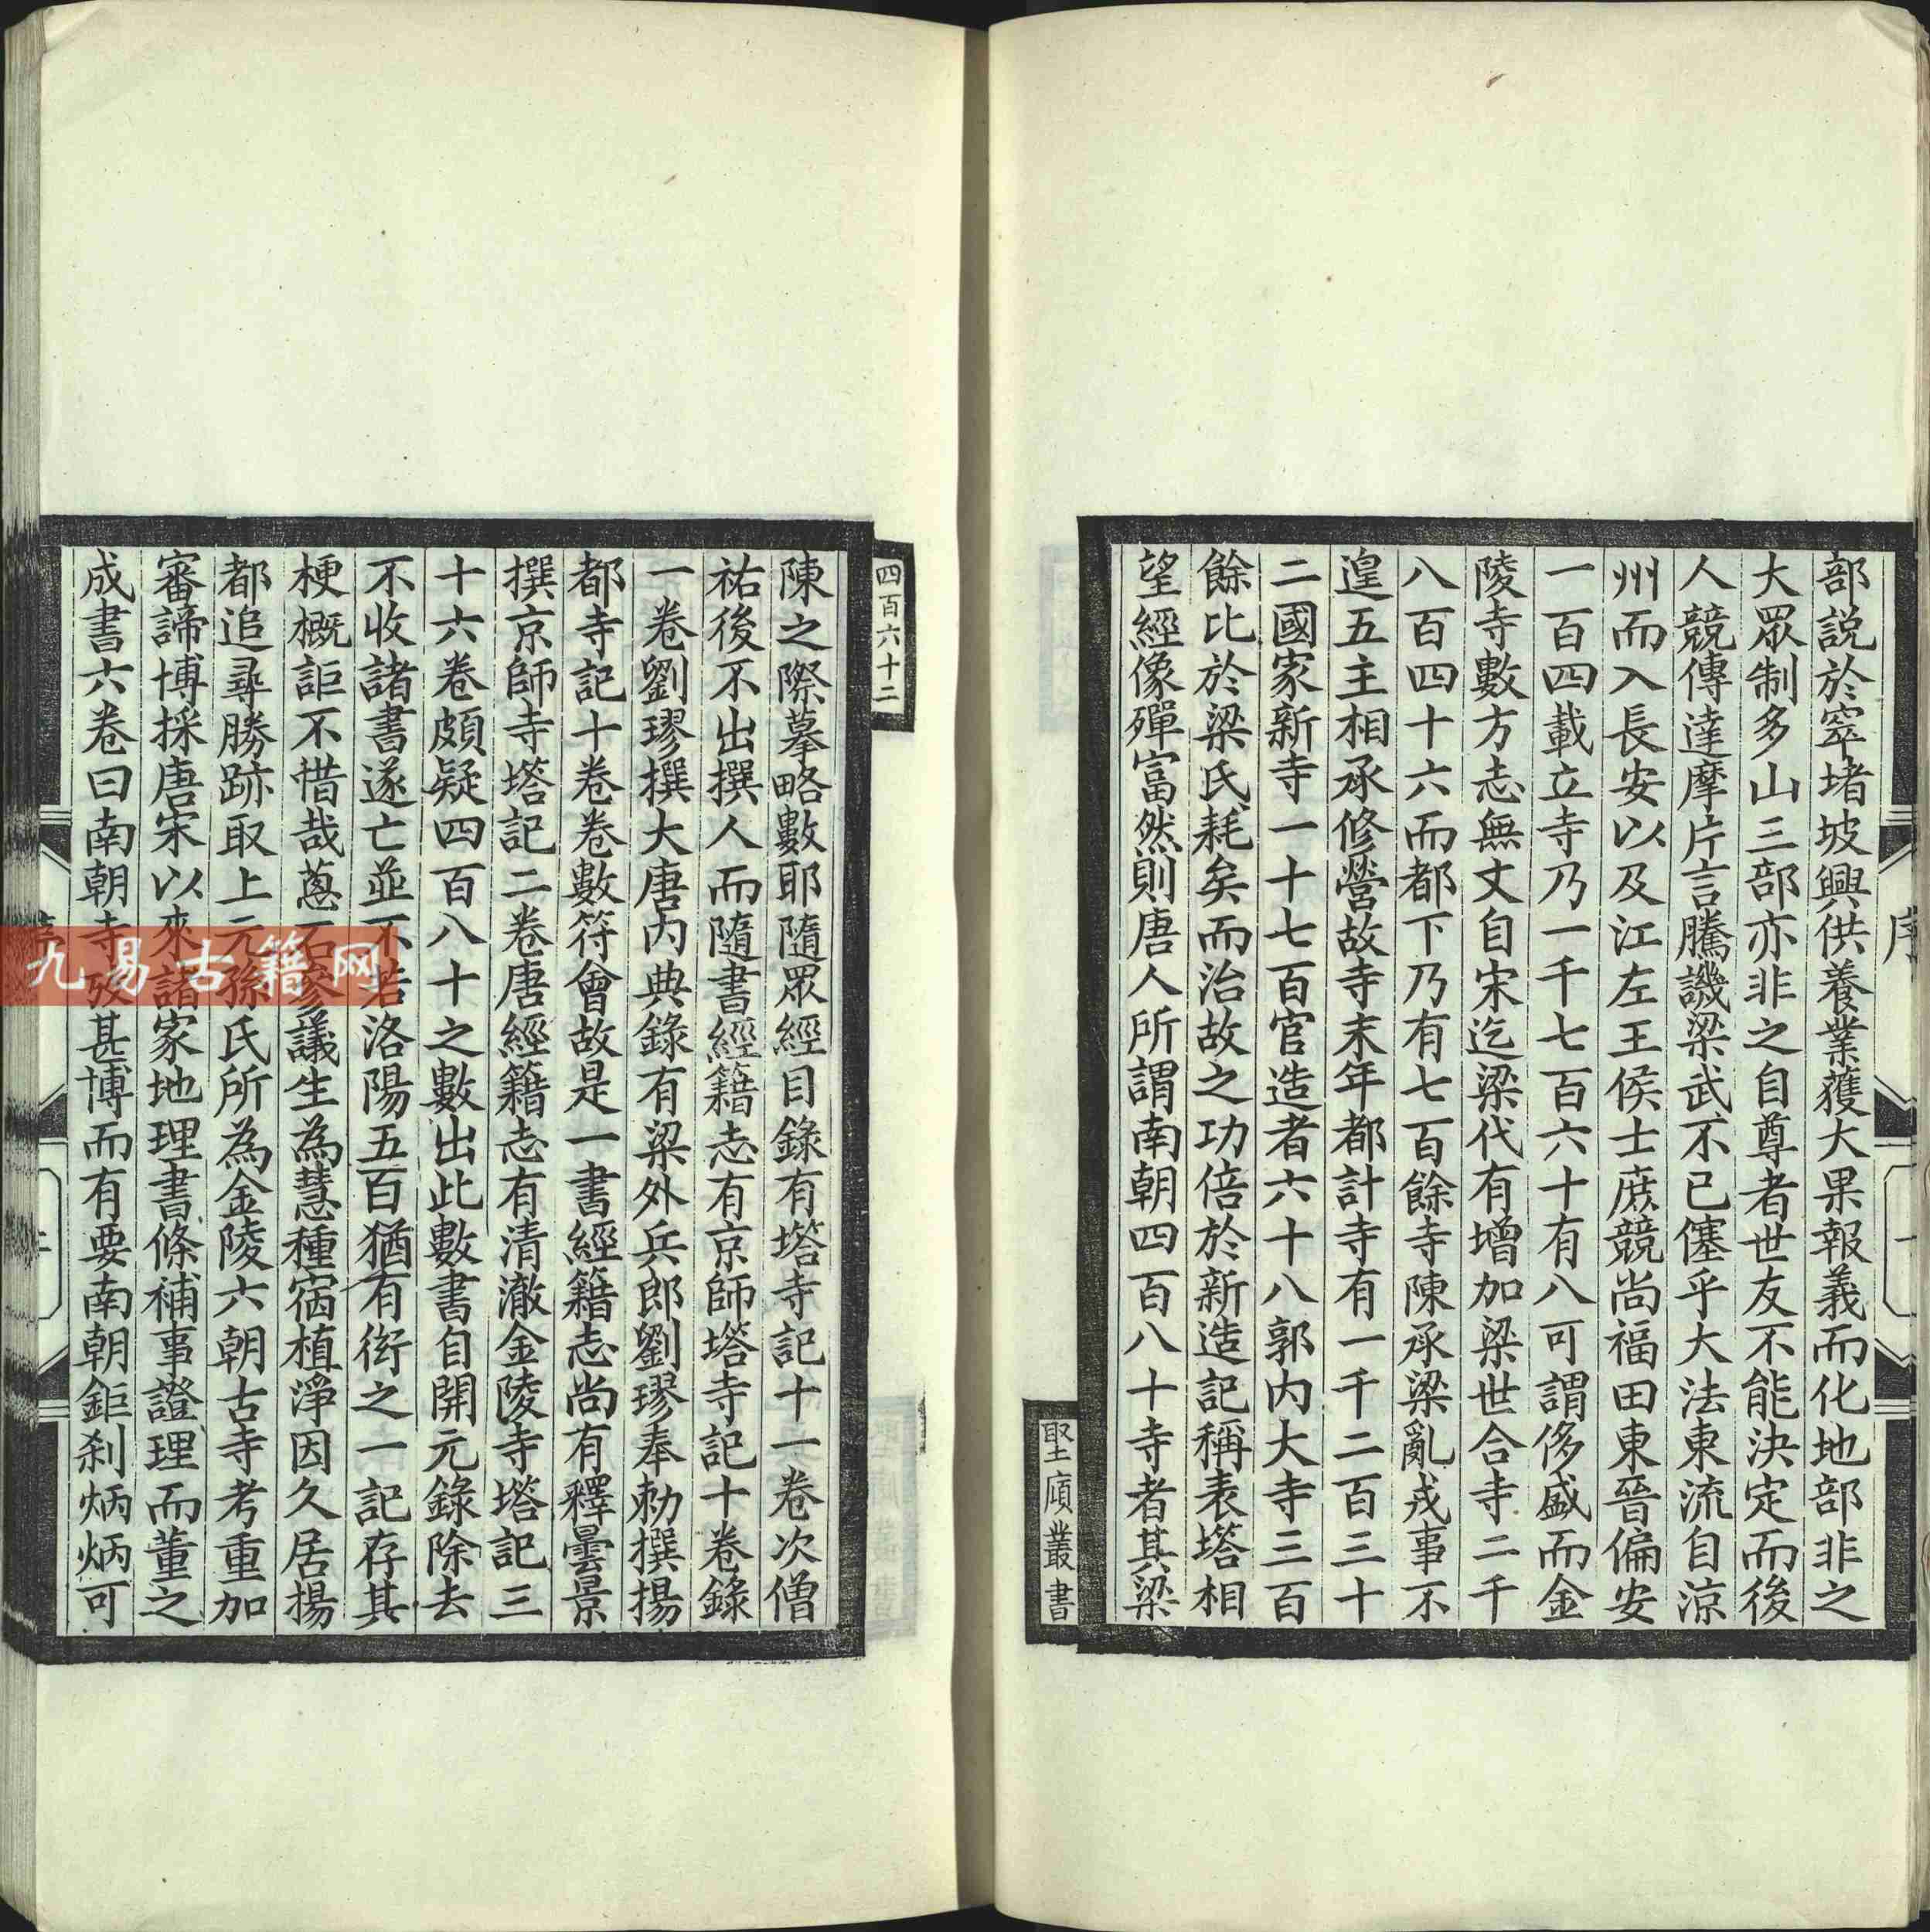 部説於窣堵坡興供養業獲大果報義而化地部非之
大眾制多山三部亦非之自尊者世友不能決定而後
人競傳達摩片言騰譏梁武不已僿乎大法東流自涼
州而入長安以及江左王侯士庶競尚福田東晉偏安
一百四載立寺乃一千七百六十有八可謂侈盛而金
陵寺數方志無文自宋迄梁代有增加梁世合寺二千
八百四十六而都下乃有七百餘寺陳承梁亂戎事不
遑五主相承修營故寺末年都計寺有一千二百三十
二國家新寺一十七百官造者六十八郭内大寺三百
餘比於梁氏耗矣而治故之功倍於新造記稱表塔相
望經像殫富然則唐人所謂南朝四百八十寺者其梁
序
一
堅㢈叢書
四百六十二
陳之際摹略數耶隨眾經目錄有塔寺記十一卷次僧
祐後不出撰人而隨書經籍志有京師塔寺記十卷錄
一卷劉璆撰大唐内典錄有梁外兵郎劉璆奉勑撰揚
都寺記十卷卷數符會故是一書經籍志尚有釋曇景
撰京師寺塔記二卷唐經籍志有清澈金陵寺塔記三
十六卷頗疑四百八十之數出此數書自開元錄除去
不收諸書遂亡並不若洛陽五百猶有衒之一記存其
梗概詎不惜哉蔥石參議生為慧種宿植淨因久居揚
都追尋勝跡取上元孫氏所為金陵六朝古寺考重加
審諦博採唐宋以來諸家地理書條補事證理而董之
成書六卷曰南朝寺攷甚博而有要南朝鉅刹炳炳可
九易古籍网